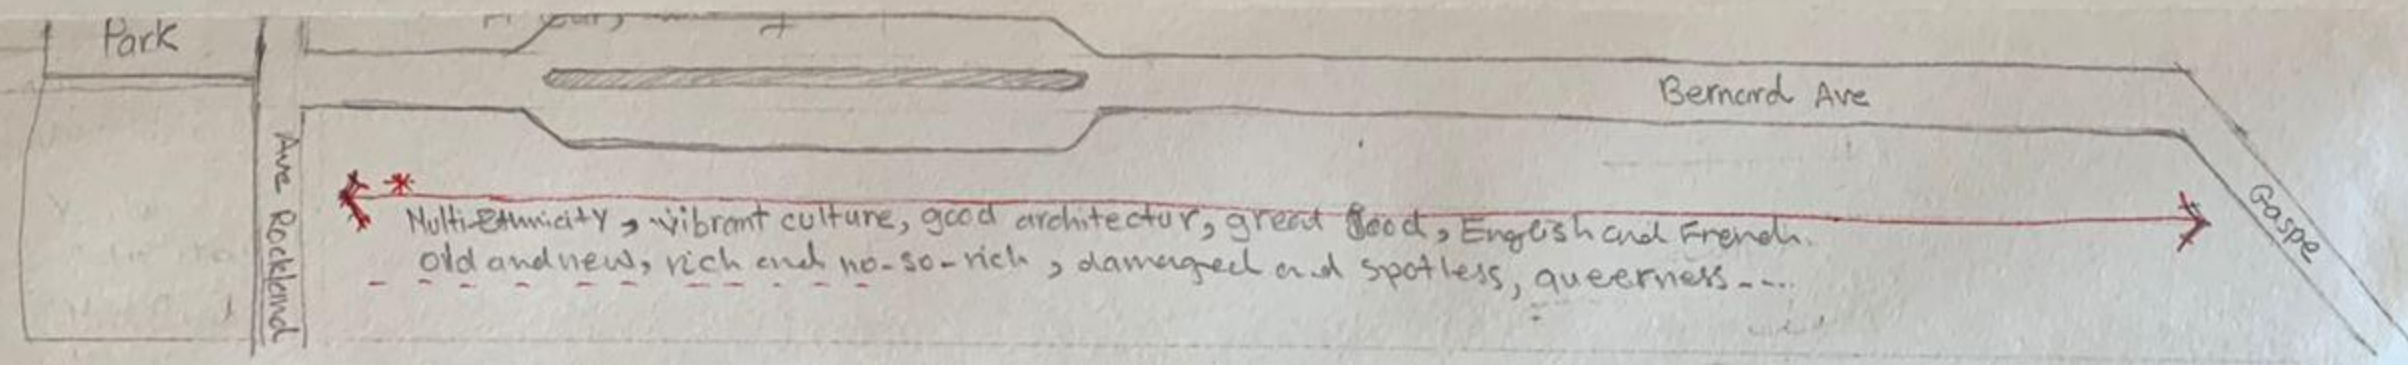 Park
Bernard Ave
Ave Rockland
Gaspe
Multi-Ethnicity, vibrant culture, good architectur, great food, English and French.
old and new, rich and no-so-rich, damaged and spotless, queerness----